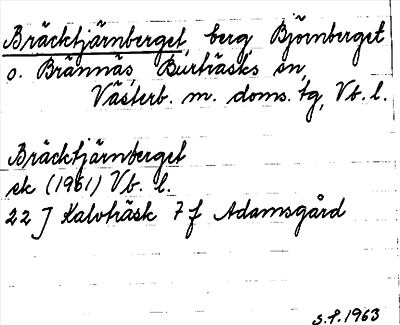 Bräcktjärnberget, berg, Björnberget
o. Brännäs, Burträsks sn,
Västerb. m. doms. tg, Vb. l.
Bräcktjärnberget
ek (1961) Vb. l.
22 J Kalvträsk 7 f Adamsgård
S.P. 1963